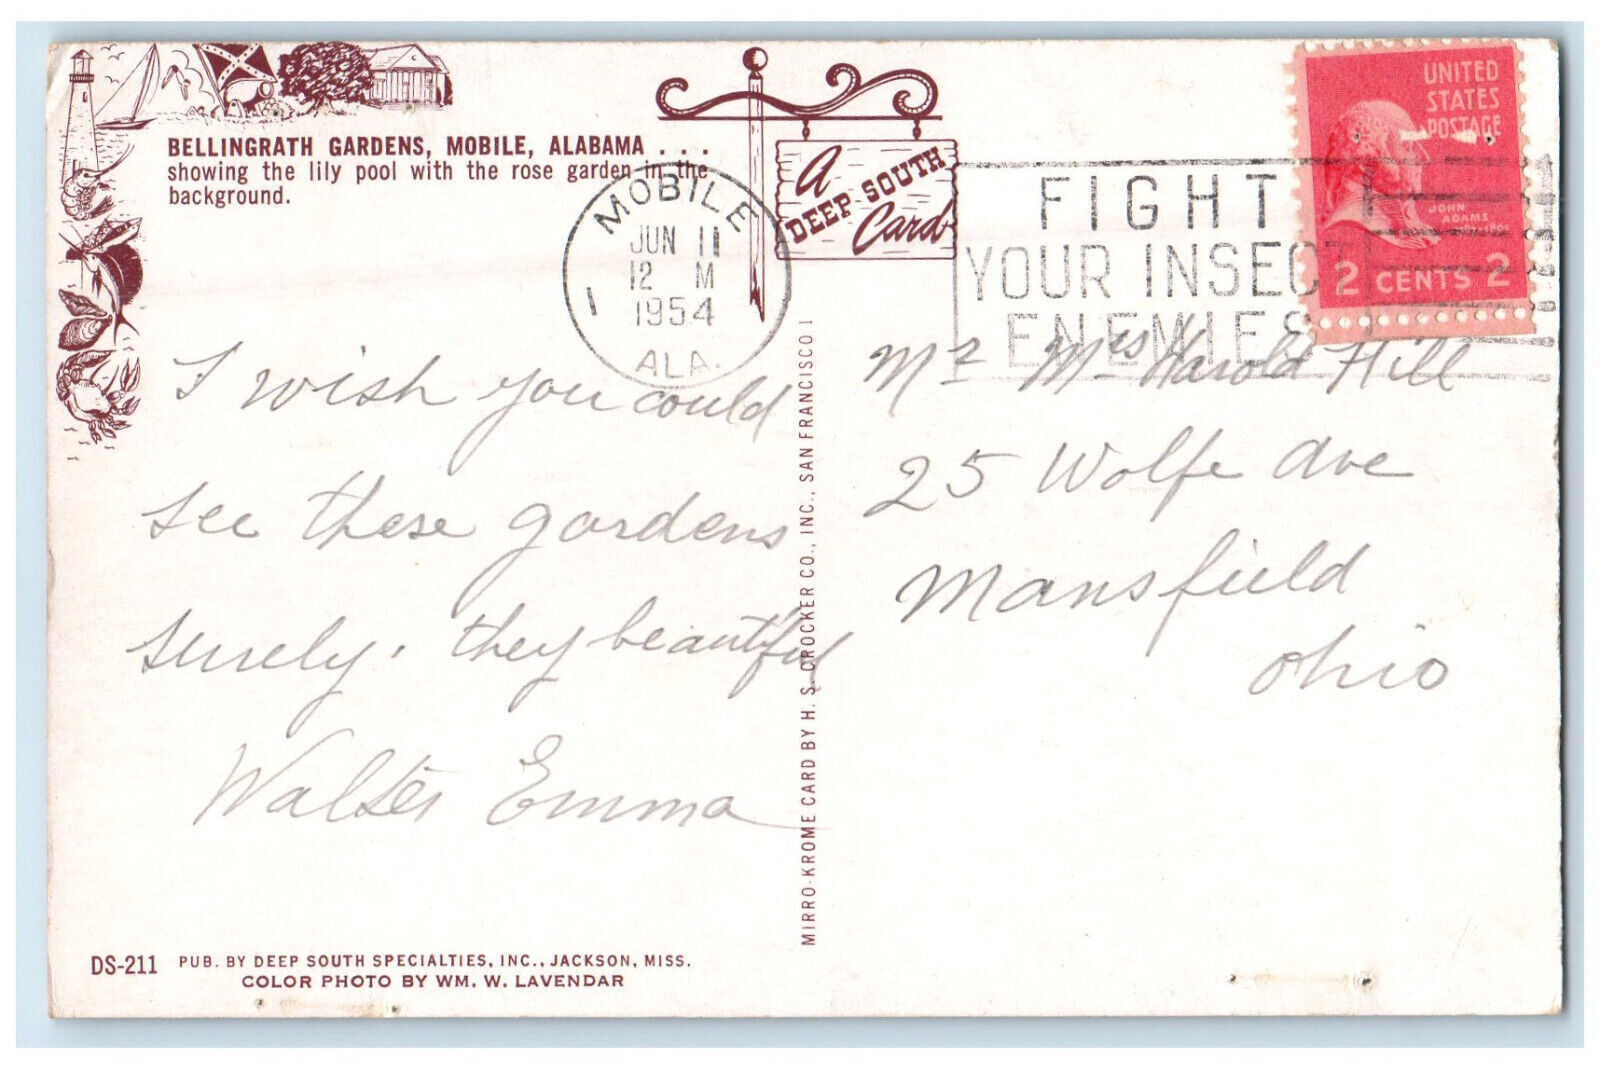 BELLINGRATH GARDENS, MOBILE, ALABAMA . . .
showing the lily pool with the rose garden in the
background.
A
DEEP-SOUTH
Card
MOBILE
JUN 11
12 M
1954
ALA.
1
FIGHT
YOUR INSECT
ENEMIES
UNITED
STATES
POSTAGE
JOHN
ADAMS
2 CENTS 2
I wish you could
see these gardens
surely. they beautiful
Walter Emma
Mr Mrs Harold Hill
25 Wolfe Ave
Mansfield
Ohio
MIRRO-KROME CARD BY H. S. CROCKER CO., INC., SAN FRANCISCO 1
DS-211 PUB. BY DEEP SOUTH SPECIALTIES, INC., JACKSON, MISS.
COLOR PHOTO BY WM. W. LAVENDAR